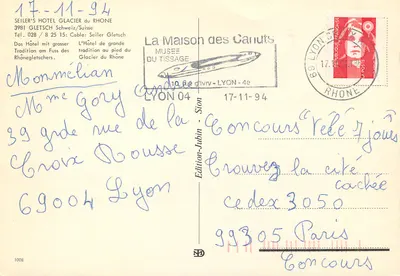 17-11-94
SEILER'S HOTEL GLACIER du RHONE
3981 GLETSCH Schweiz/Suisse
Tel. 028 / 8 25 15: Cable: Seiler Gletsch
Das Hôtel mit grosser
Tradition am Fuss des
Rhônegletschers.
L'Hôtel de grande
tradition au pied du
Glacier du Rhône
Monmélian
Mme Gory andrée
39 grde rue de la
Croix Rousse
69004 Lyon
La Maison des Canuts
MUSEE
DU TISSAGE
d'Ivry - LYON - 4e
LYON 04 17-11-94
69 LYON
RHONE
Edition Jubin - Sion
Concours "télé 7 jours
Trouvez la cité
cachée
cedex 3050
99305 Paris
Concours
1008